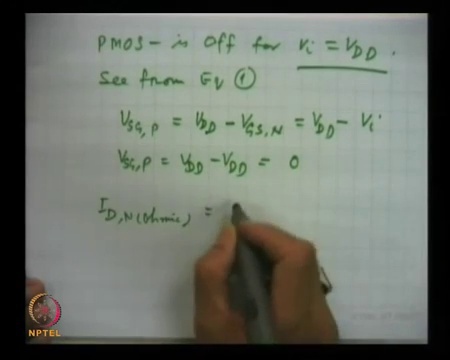 PMOS - is Off for Vi = VDD.
See from Eq ①
VSG,P = VDD - VGS,N = VDD - Vi
VSG,P = VDD - VDD = 0
ID,N(Ohmic) =
NPTEL